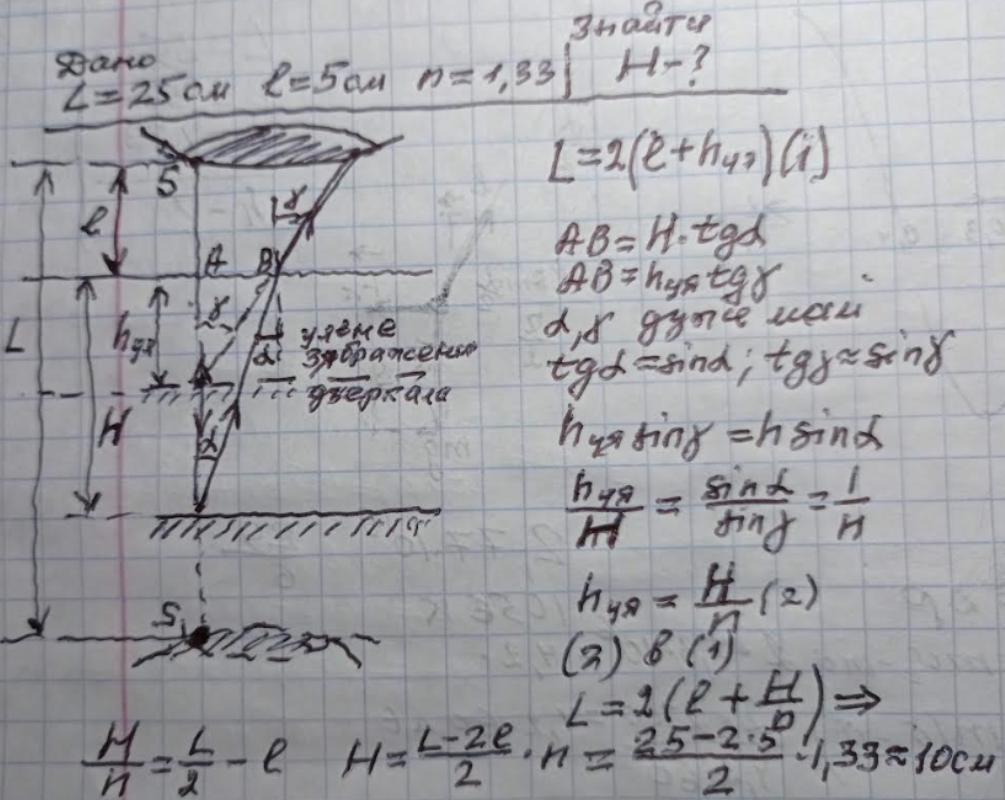 Дано
L=25см l=5см n=1,33
Знайти
H-?
S
l
L
A
B
γ
γ
hуя
α
уявне
зображення
дзеркала
H
α
S₁
L=2(l+hуя)(1)
AB=H·tgα
AB=hуя tgγ
α,γ дуже малі
tgα=sinα; tgγ≈sinγ
hуя sinγ=h sinα
hуя/H = sinα/sinγ = 1/n
hуя = H/n (2)
(2) в (1)
L=2(l+H/n) ⇒
H/n = L/2 - l H = (L-2l)/2 · n = (25-2·5)/2 · 1,33≈10см